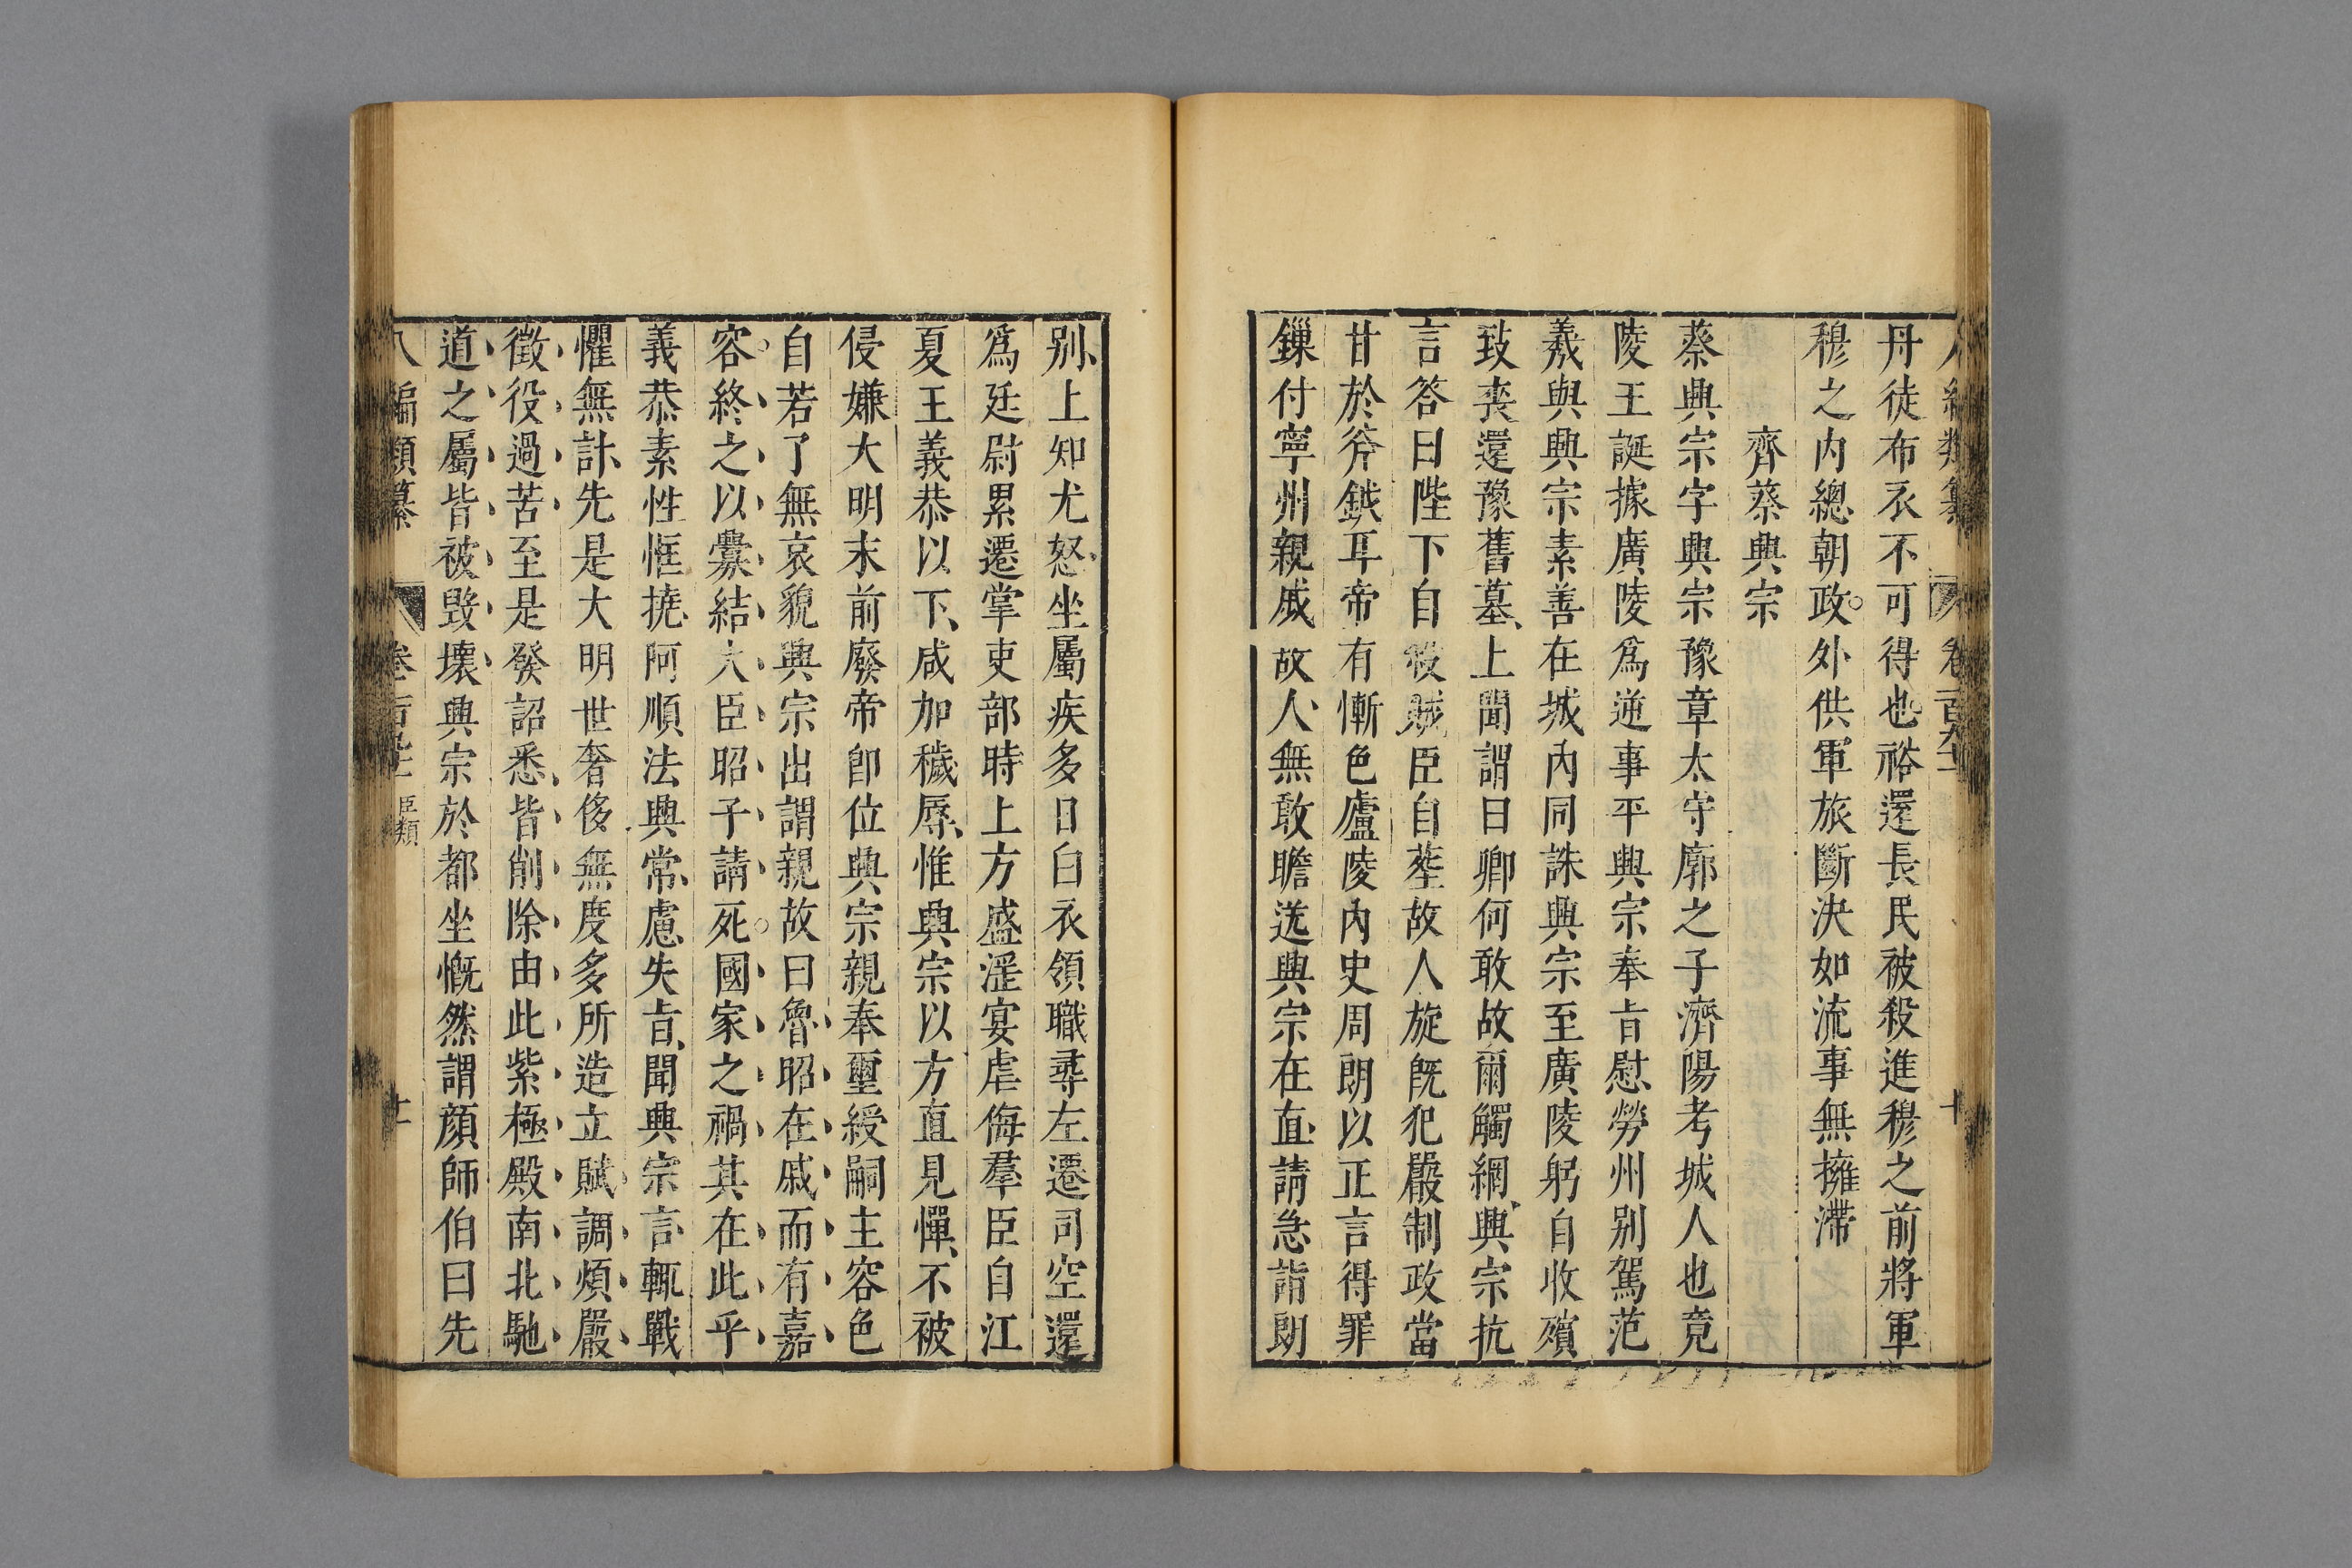 丹徒布衣不可得也裕還長民被殺進穆之前將軍
穆之内總朝政外供軍旅斷決如流事無擁滯
齊蔡興宗
蔡興宗字興宗豫章太守廓之子濟陽考城人也竟
陵王誕據廣陵爲逆事平興宗奉旨慰勞州别駕范
羲與興宗素善在城内同誅興宗至廣陵躬自收殯
致喪還豫舊墓上聞謂曰卿何敢故爾觸網興宗抗
言答曰陛下自殺賊臣自塟故人旋既犯嚴制政當
甘於斧鉞耳帝有慚色廬陵内史周朗以正言得罪
鏁付寧州親戚故人無敢瞻送興宗在直請急詣朗
别上知尤怒坐屬疾多日白衣領職尋左遷司空還
爲廷尉累遷掌吏部時上方盛淫宴虐侮羣臣自江
夏王義恭以下咸加穢辱惟興宗以方直見憚不被
侵嫌大明末前廢帝卽位興宗親奉璽綬嗣主容色
自若了無哀貌興宗出謂親故曰魯昭在戚而有嘉
容終之以釁結大臣昭子請死國家之禍其在此乎
義恭素性恇撓阿順法興常慮失旨聞興宗言輒戰
懼無計先是大明世奢侈無度多所造立賦調煩嚴
徵役過苦至是發詔悉皆削除由此紫極殿南北馳
道之屬皆被毀壞興宗於都坐慨然謂顔師伯曰先
八編類纂 卷百 臣類